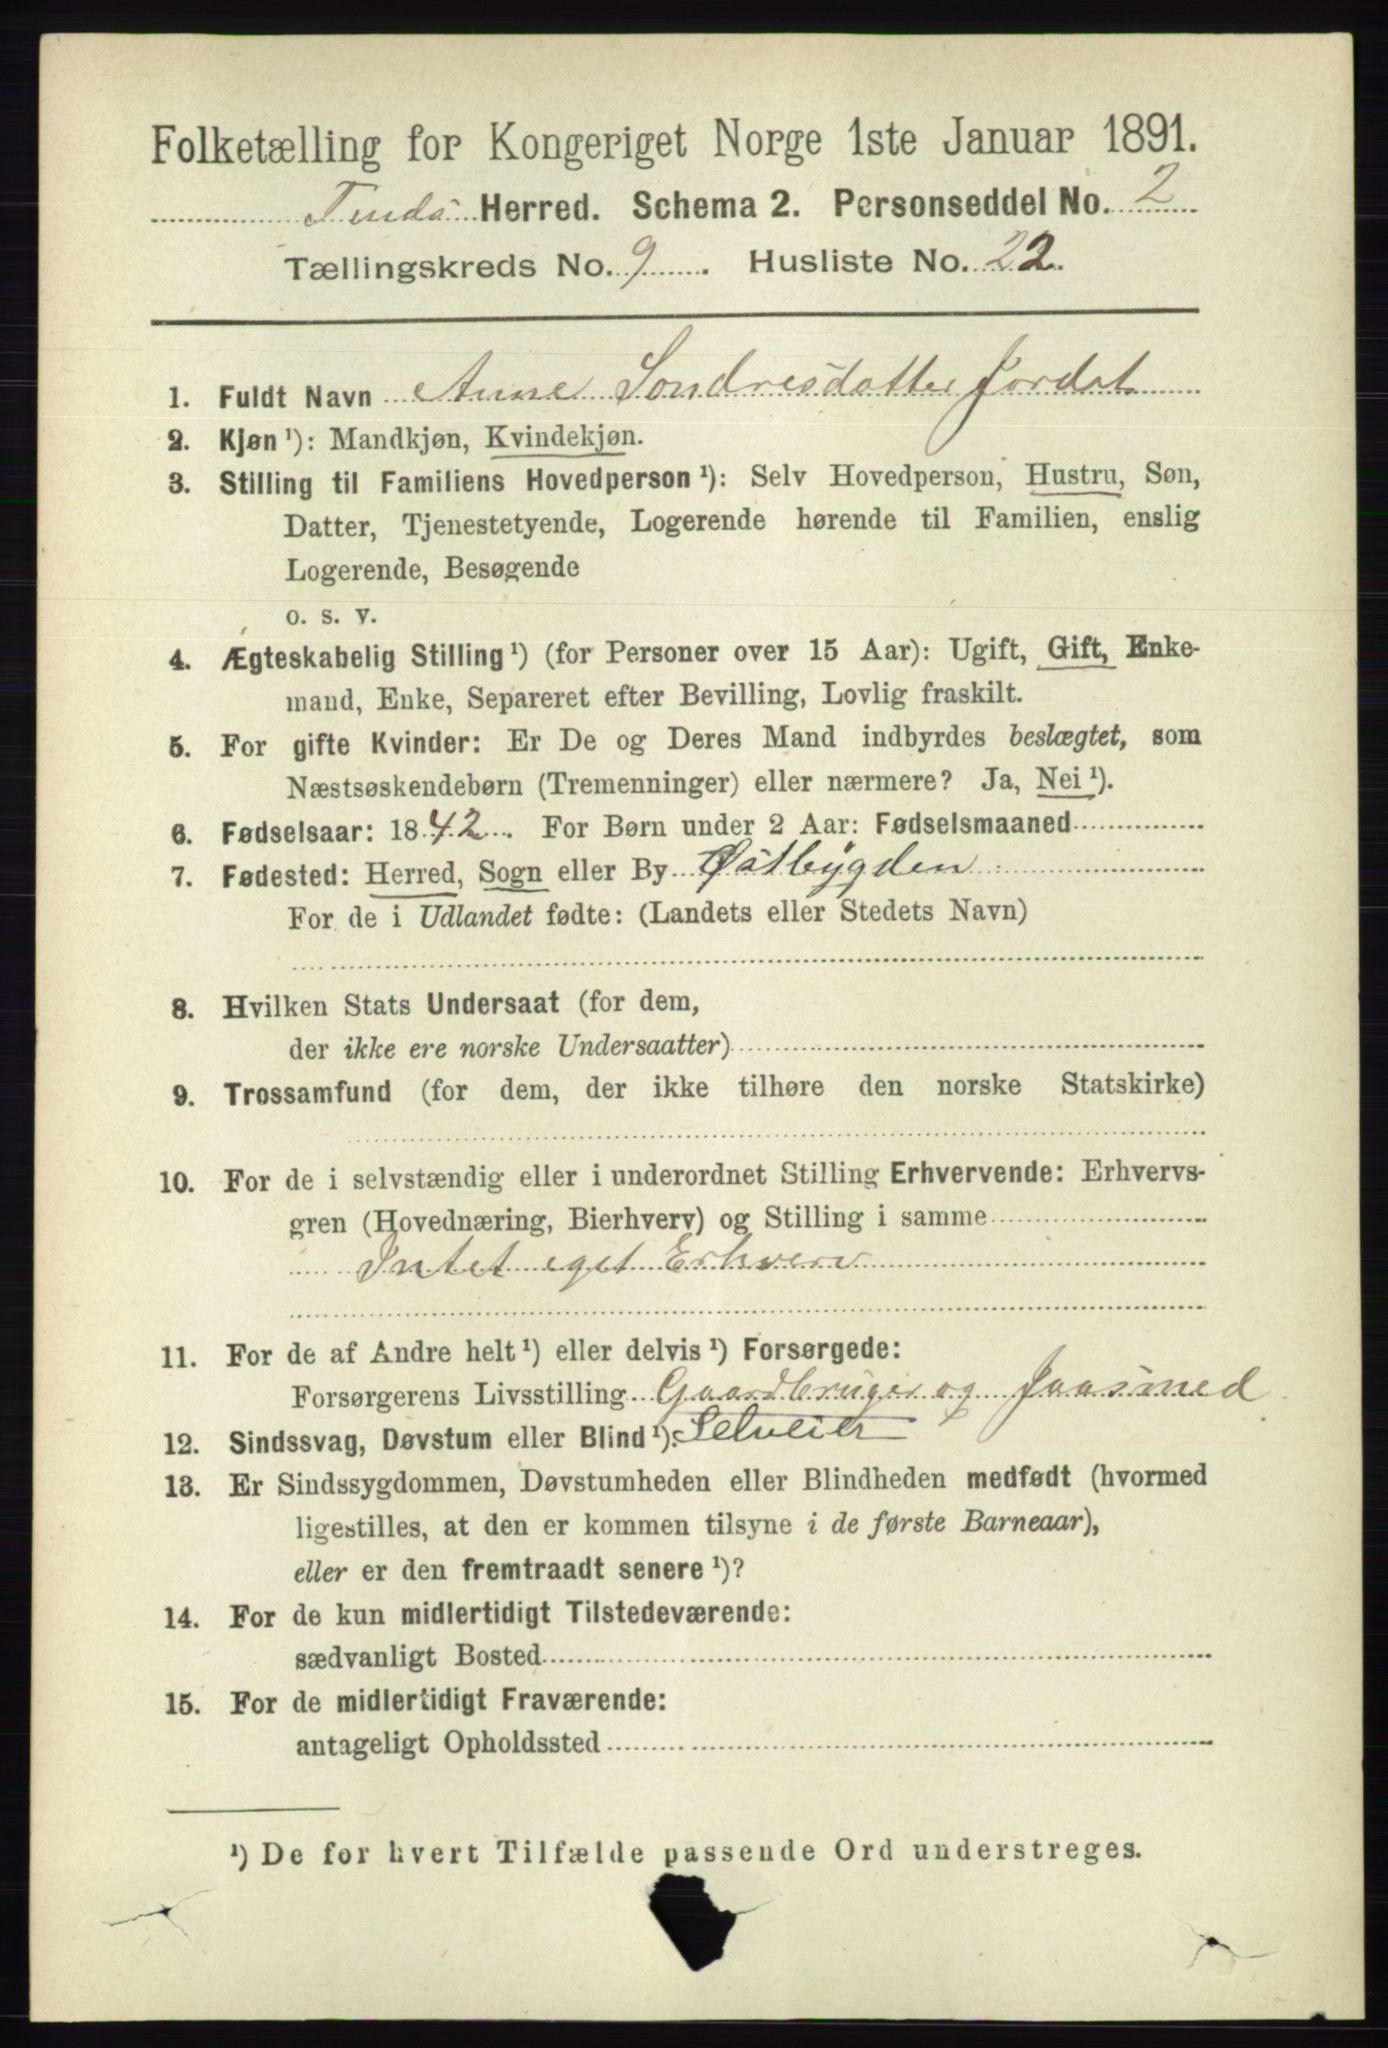 Folketælling for Kongeriget Norge 1ste Januar 1891.
Tinds Herred. Schema 2. Personseddel No. 2
Tællingskreds No. 9. Husliste No. 22.
1. Fuldt Navn Anne Sondresdatter Jordet
2. Kjøn ¹): Mandkjøn, Kvindekjøn.
3. Stilling til Familiens Hovedperson ¹): Selv Hovedperson, Hustru, Søn,
Datter, Tjenestetyende, Logerende hørende til Familien, enslig
Logerende, Besøgende
o. s. v.
4. Ægteskabelig Stilling ¹) (for Personer over 15 Aar): Ugift, Gift, Enke-
mand, Enke, Separeret efter Bevilling, Lovlig fraskilt.
5. For gifte Kvinder: Er De og Deres Mand indbyrdes beslægtet, som
Næstsøskendebørn (Tremenninger) eller nærmere? Ja, Nei ¹).
6. Fødselsaar: 1842. For Børn under 2 Aar: Fødselsmaaned
7. Fødested: Herred, Sogn eller By Østbygden
For de i Udlandet fødte: (Landets eller Stedets Navn)
8. Hvilken Stats Undersaat (for dem,
der ikke ere norske Undersaatter)
9. Trossamfund (for dem, der ikke tilhøre den norske Statskirke)
10. For de i selvstændig eller i underordnet Stilling Erhvervende: Erhvervs-
gren (Hovednæring, Bierhverv) og Stilling i samme
Intet eget Erhverv
11. For de af Andre helt ¹) eller delvis ¹) Forsørgede:
Forsørgerens Livsstilling Gaardbruger og
Selveier
12. Sindssvag, Døvstum eller Blind ¹).
13. Er Sindssygdommen, Døvstumheden eller Blindheden medfødt (hvormed
ligestilles, at den er kommen tilsyne i de første Barneaar),
eller er den fremtraadt senere ¹)?
14. For de kun midlertidigt Tilstedeværende:
sædvanligt Bosted
15. For de midlertidigt Fraværende:
antageligt Opholdssted
¹) De for hvert Tilfælde passende Ord understreges.